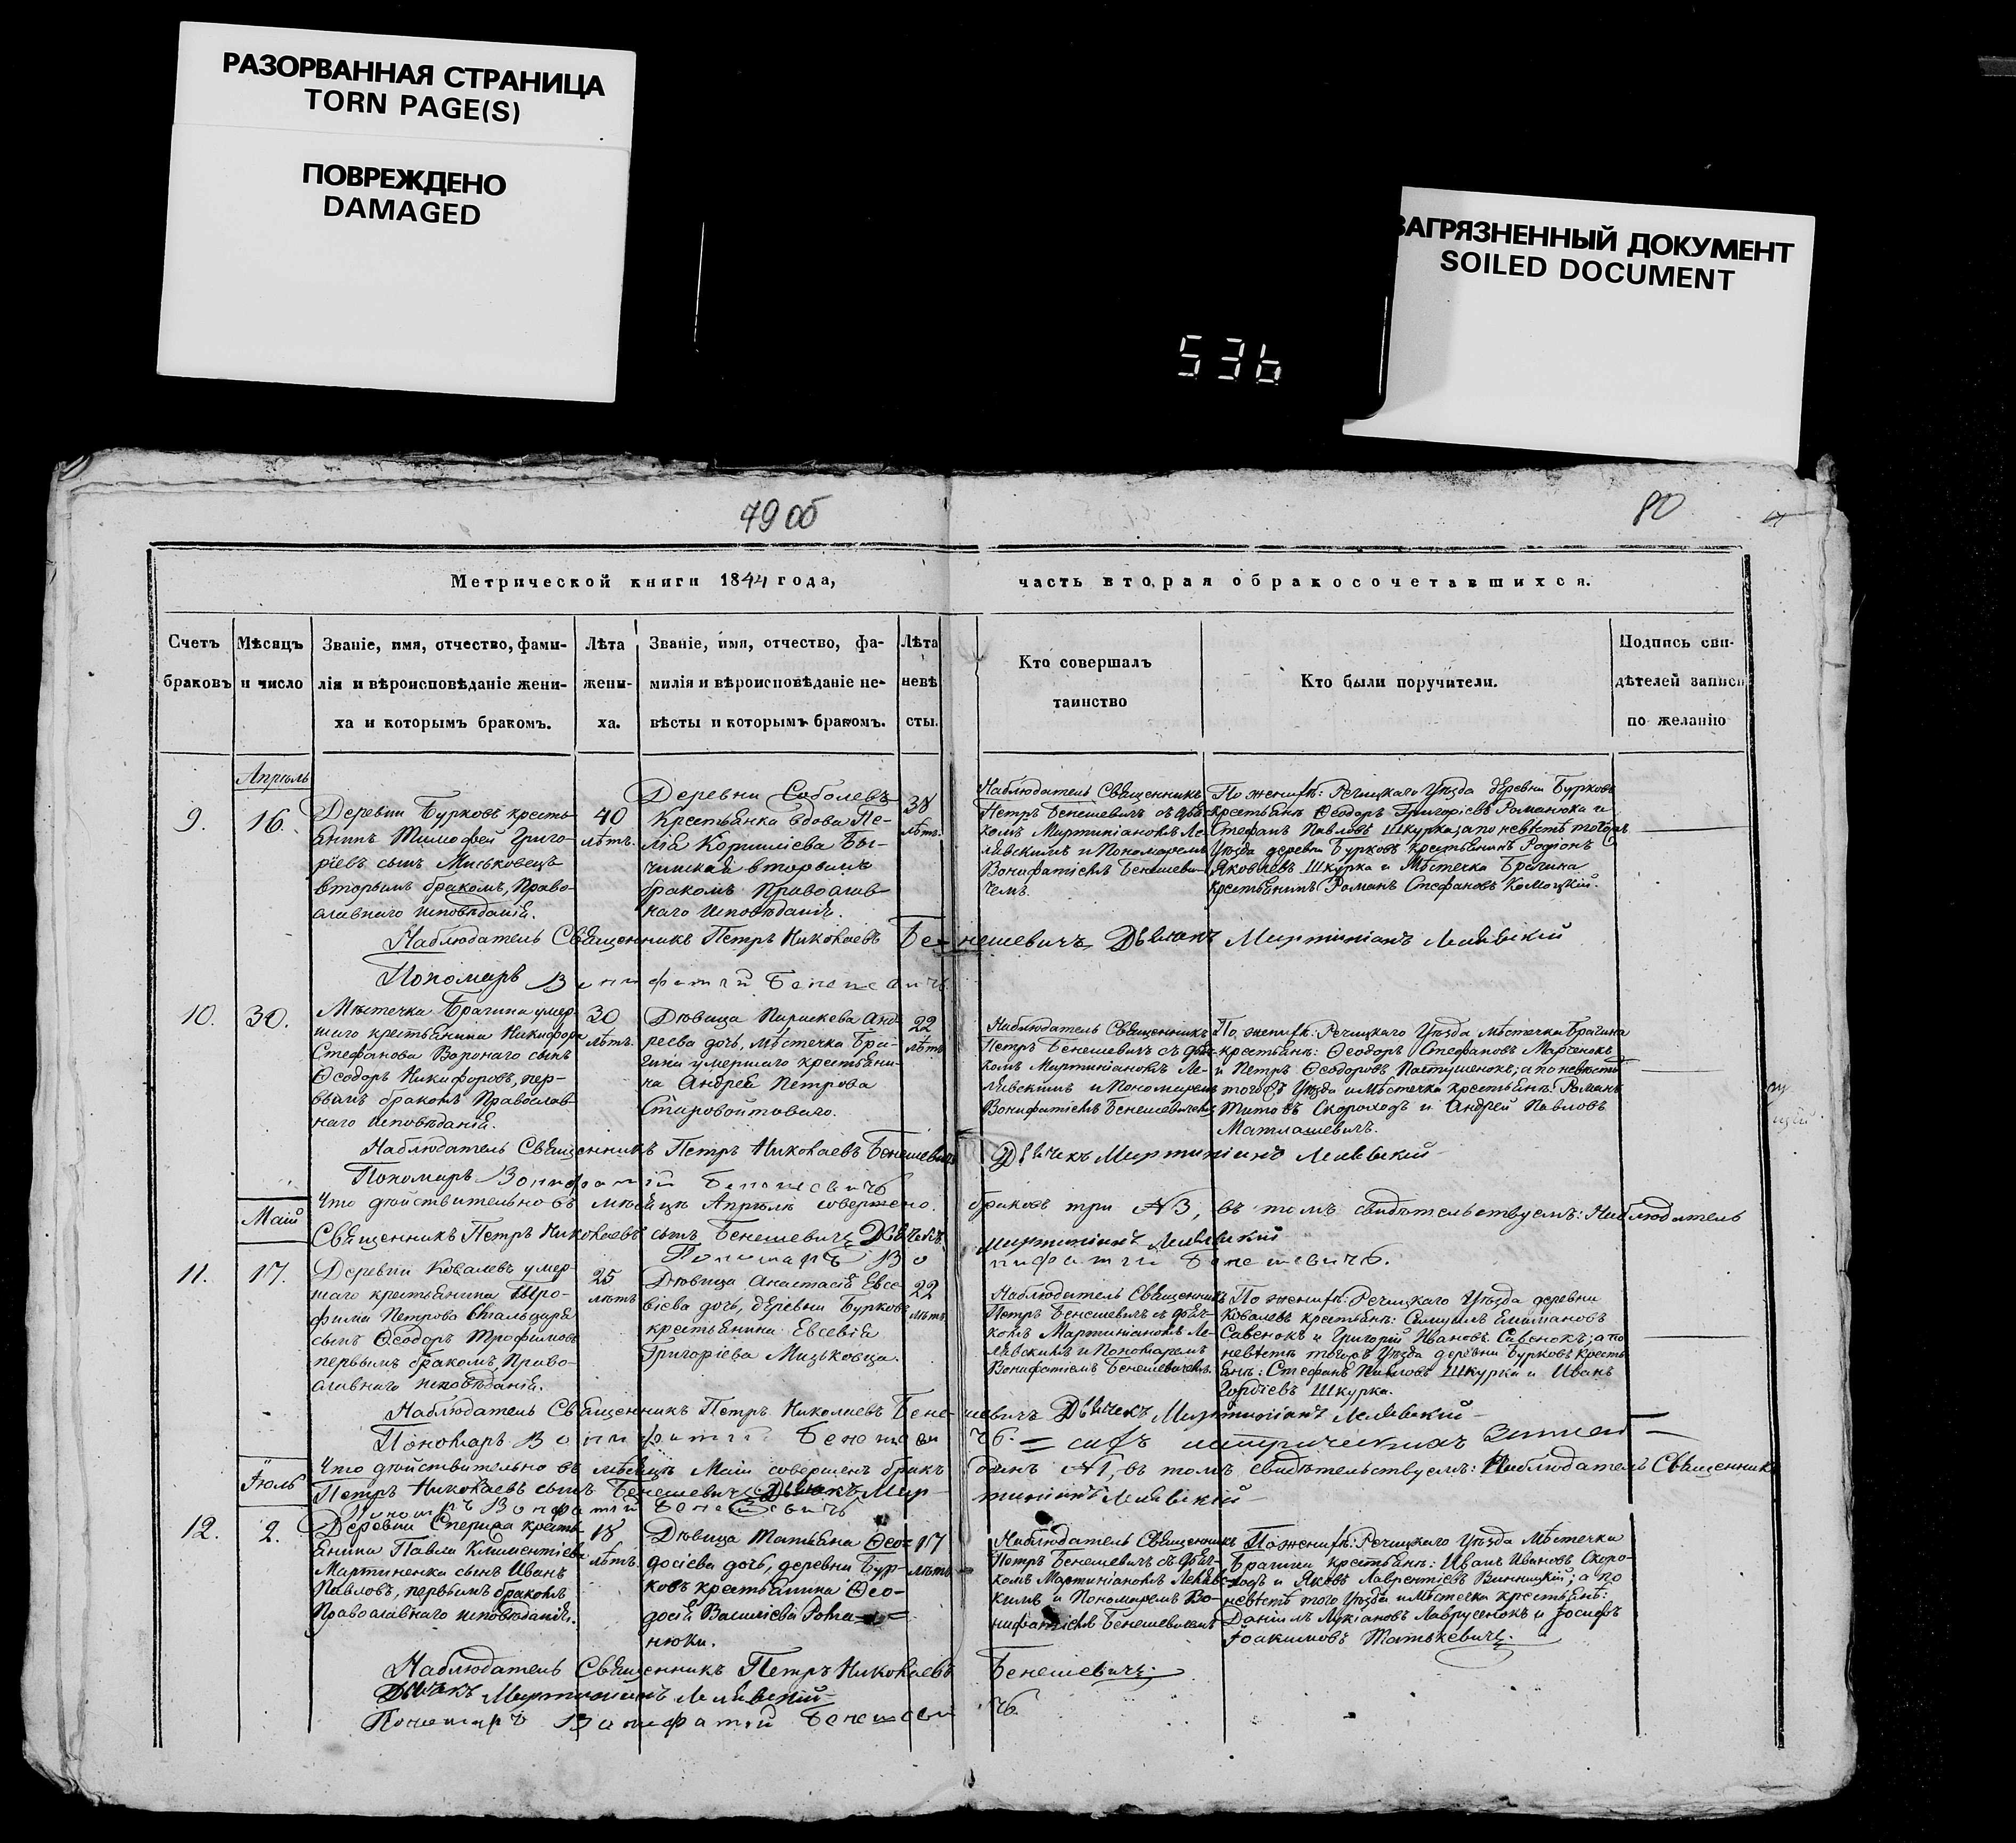 РАЗОРВАННАЯ СТРАНИЦА
TORN PAGE(S)
ПОВРЕЖДЕНО
DAMAGED
ЗАГРЯЗНЕННЫЙ ДОКУМЕНТ
SOILED DOCUMENT
536
79 об
80
Метрической книги 1844 года,
часть вторая обракосочетавшихся.
Счетъ
браковъ
Мѣсяцъ
и число
Званіе, имя, отчество, фами-
лія и вѣроисповѣданіе жени-
ха и которымъ бракомъ.
Лѣта
жени-
ха.
Званіе, имя, отчество, фа-
милія и вѣроисповѣданіе не-
вѣсты и которымъ бракомъ.
Лѣта
невѣ
сты.
Кто совершалъ
таинство
Кто были поручители.
Подпись сви-
дѣтелей записи
по желанію
Апрѣль
9.
16.
Деревни Бурковъ кресть-
янинъ Тимофей Григо-
ріевъ сынъ Миськовецъ
вторымъ бракомъ, Право-
славнаго исповѣданія.
40
лѣтъ.
Деревни Соболевъ
Крестьянка вдова Пе-
лагія Корниліева
вторымъ
бракомъ Православ-
наго исповѣданія.
38
лѣтъ.
Наблюдатель Священникъ
Петръ Бенешевичъ съ дьяч-
комъ Мартиніаномъ Ле-
лявскимъ и Пономаремъ
Вонифатіемъ Бенешеви-
чемъ.
По женихѣ: Речицкаго Уѣзда деревни Бурковъ
крестьяне Ѳеодоръ Григоріевъ Романюка и
Стефанъ Павловъ Шкурка; а по невѣстѣ тогожъ
Уѣзда деревни Бурковъ крестьянинъ Родіонъ
Яковлевъ Шкурка и Мѣстечка Брагина
крестьянинъ Романъ Стефановъ Комоцкій.
Наблюдатель Священникъ Петръ Николаевъ Бенешевичъ Дьячекъ Мартиніанъ Лелявскій
Пономарь Вонифатій Бенешевичъ
10.
30.
Мѣстечка Брагина умер-
шаго крестьянина Никифора
Стефанова Воронаго сынъ
Ѳеодоръ Никифоровъ, пер-
вымъ бракомъ Православ-
наго исповѣданія.
30
лѣтъ.
Дѣвица Параскева Анд-
реева дочь, Мѣстечка Бра-
гина умершаго крестьяни-
на Андрея Петрова
Старовойтоваго.
22
лѣтъ
Наблюдатель Священникъ
Петръ Бенешевичъ съ дьяч-
комъ Мартиніаномъ Ле-
лявскимъ и Пономаремъ
Вонифатіемъ Бенешевичемъ
По женихѣ: Речицкаго Уѣзда мѣстечка Брагина
крестьяне: Ѳеодоръ Стефановъ Марченокъ
и Петръ Ѳеодоровъ Пастушенокъ; а по невѣстѣ
тогожъ Уѣзда и Мѣстечка крестьяне: Романъ
Титовъ Скороходъ и Андрей Павловъ
Матлашевичъ.
Наблюдатель Священникъ Петръ Николаевъ Бенешевичъ Дьячекъ Мартиніанъ Лелявскій
Пономарь Вонифатій Бенешевичъ
Что дѣйствительно въ мѣсяцѣ Апрѣлѣ совершено браковъ три №3, въ томъ свидѣтельствуемъ: Наблюдатель
Май
Священникъ Петръ Николаевъ сынъ Бенешевичъ Дьячекъ Мартиніанъ Лелявскій
Пономарь Вонифатій Бенешевичъ.
11.
17.
Деревни Ковалевъ умер-
шаго крестьянина Тро-
фима Петрова
сынъ Ѳеодоръ Трофимовъ
первымъ бракомъ, Право-
славнаго исповѣданія.
25
лѣтъ
Дѣвица Анастасія Евсе-
віева дочь, деревни Бурковъ
крестьянина Евсевія
Григоріева Миськовца.
22
лѣтъ
Наблюдатель Священникъ
Петръ Бенешевичъ съ дьяч-
комъ Мартиніаномъ Ле-
лявскимъ и Пономаремъ
Вонифатіемъ Бенешевичемъ.
По женихѣ: Речицкаго Уѣзда деревни
Ковалевъ крестьяне: Самуилъ
Савенокъ и Григорій Ивановъ Савенокъ; а по
невѣстѣ тогожъ Уѣзда деревни Бурковъ кресть-
яне: Стефанъ Павловъ Шкурка и Иванъ
Гордіевъ Шкурка.
Наблюдатель Священникъ Петръ Николаевъ Бенешевичъ Дьячекъ Мартиніанъ Лелявскій
Пономарь Вонифатій Бенешевичъ.
Что дѣйствительно въ мѣсяцѣ Маѣ совершенъ бракъ одинъ №1, въ томъ свидѣтельствуемъ: Наблюдатель Священникъ
Іюль
Петръ Николаевъ сынъ Бенешевичъ Дьячекъ Мартиніанъ Лелявскій
Пономарь Вонифатій Бенешевичъ
12.
2.
Деревни Сперижа кресть-
янина Павла Климентіева
Мартиненка сынъ Иванъ
Павловъ, первымъ бракомъ
Православнаго исповѣданія.
18
лѣтъ.
Дѣвица Татьяна Ѳео-
досіева дочь, деревни Бур-
ковъ крестьянина Ѳео-
досія Василіева Рома-
нюки.
17
лѣтъ
Наблюдатель Священникъ
Петръ Бенешевичъ съ дьяч-
комъ Мартиніаномъ Леляв-
скимъ и Пономаремъ Во-
нифатіемъ Бенешевичемъ
По женихѣ: Речицкаго Уѣзда Мѣстечка
Брагина крестьяне: Иванъ Ивановъ Скоро-
ходъ и Яковъ Лаврентіевъ Винницкій; а по
невѣстѣ того Уѣзда и Мѣстечка крестьяне:
Даніилъ Лукіановъ Лаврусенокъ и Іосифъ
Іоакимовъ Матькевичъ.
Наблюдатель Священникъ Петръ Николаевъ Бенешевичъ.
Дьячекъ Мартиніанъ Лелявскій
Пономарь Вонифатій Бенешевичъ